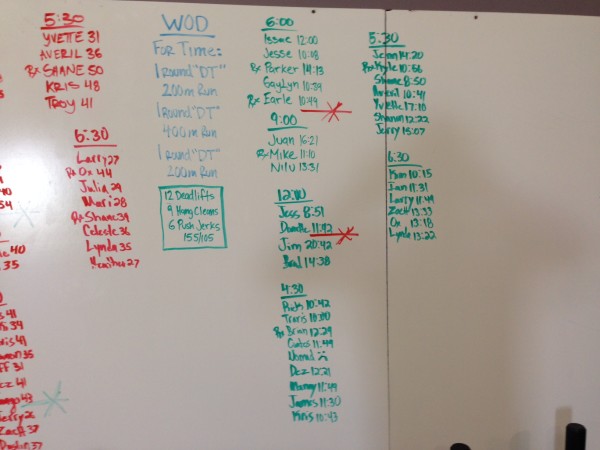 5:30
YVETTE 31
AVERIL 36
Rx SHANE 50
KRIS 48
TROY 41
6:30
Larry 27
Rx Ox 44
Julia 29
Mari 28
Rx Shane 39
Celeste 36
Lynda 35
Heather 27
40
54
40
35
41
34
41
35
31
41
43
Jerry 26
Zach 37
Dustin 37
WOD
For Time:
1 round "DT"
200m Run
1 round "DT"
400m Run
1 round "DT"
200m Run
12 Deadlifts
9 Hang Cleans
6 Push Jerks
155/105
6:00
Issac 12:00
Jesse 10:18
Rx Parker 14:13
Gaylyn 10:39
Rx Earle 10:49
9:00
Juan 16:21
Rx Mike 11:10
Nilu 13:31
12:10
Jess 8:51
11:42
Jim 20:42
14:38
4:30
Rich 10:42
Travis 10:00
Rx Brian 12:29
Carlos 11:49
Nomad :(
Dez 12:21
Manny 11:49
James 11:30
Kris 10:43
5:30
Jenn 14:20
Rx Kyle 10:56
Shane 8:50
Averil 10:41
Yvette 17:10
Shannon 12:22
Jerry 15:07
6:30
Ken 10:15
Ian 11:31
Larry 11:49
Zach 13:33
Ox 13:18
Lynda 13:22